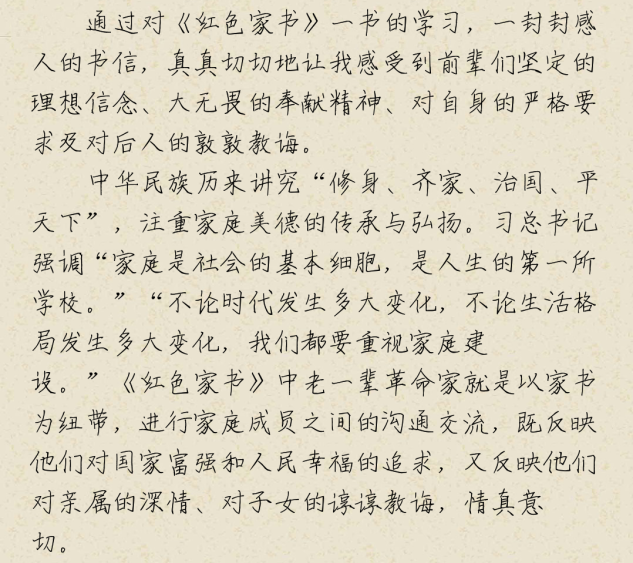 通过对《红色家书》一书的学习，一封封感
人的书信，真真切切地让我感受到前辈们坚定的
理想信念、大无畏的奉献精神、对自身的严格要
求及对后人的敦敦教诲。
中华民族历来讲究“修身、齐家、治国、平
天下”，注重家庭美德的传承与弘扬。习总书记
强调“家庭是社会的基本细胞，是人生的第一所
学校。”“不论时代发生多大变化，不论生活格
局发生多大变化，我们都要重视家庭建
设。”《红色家书》中老一辈革命家就是以家书
为纽带，进行家庭成员之间的沟通交流，既反映
他们对国家富强和人民幸福的追求，又反映他们
对亲属的深情、对子女的谆谆教诲，情真意
切。